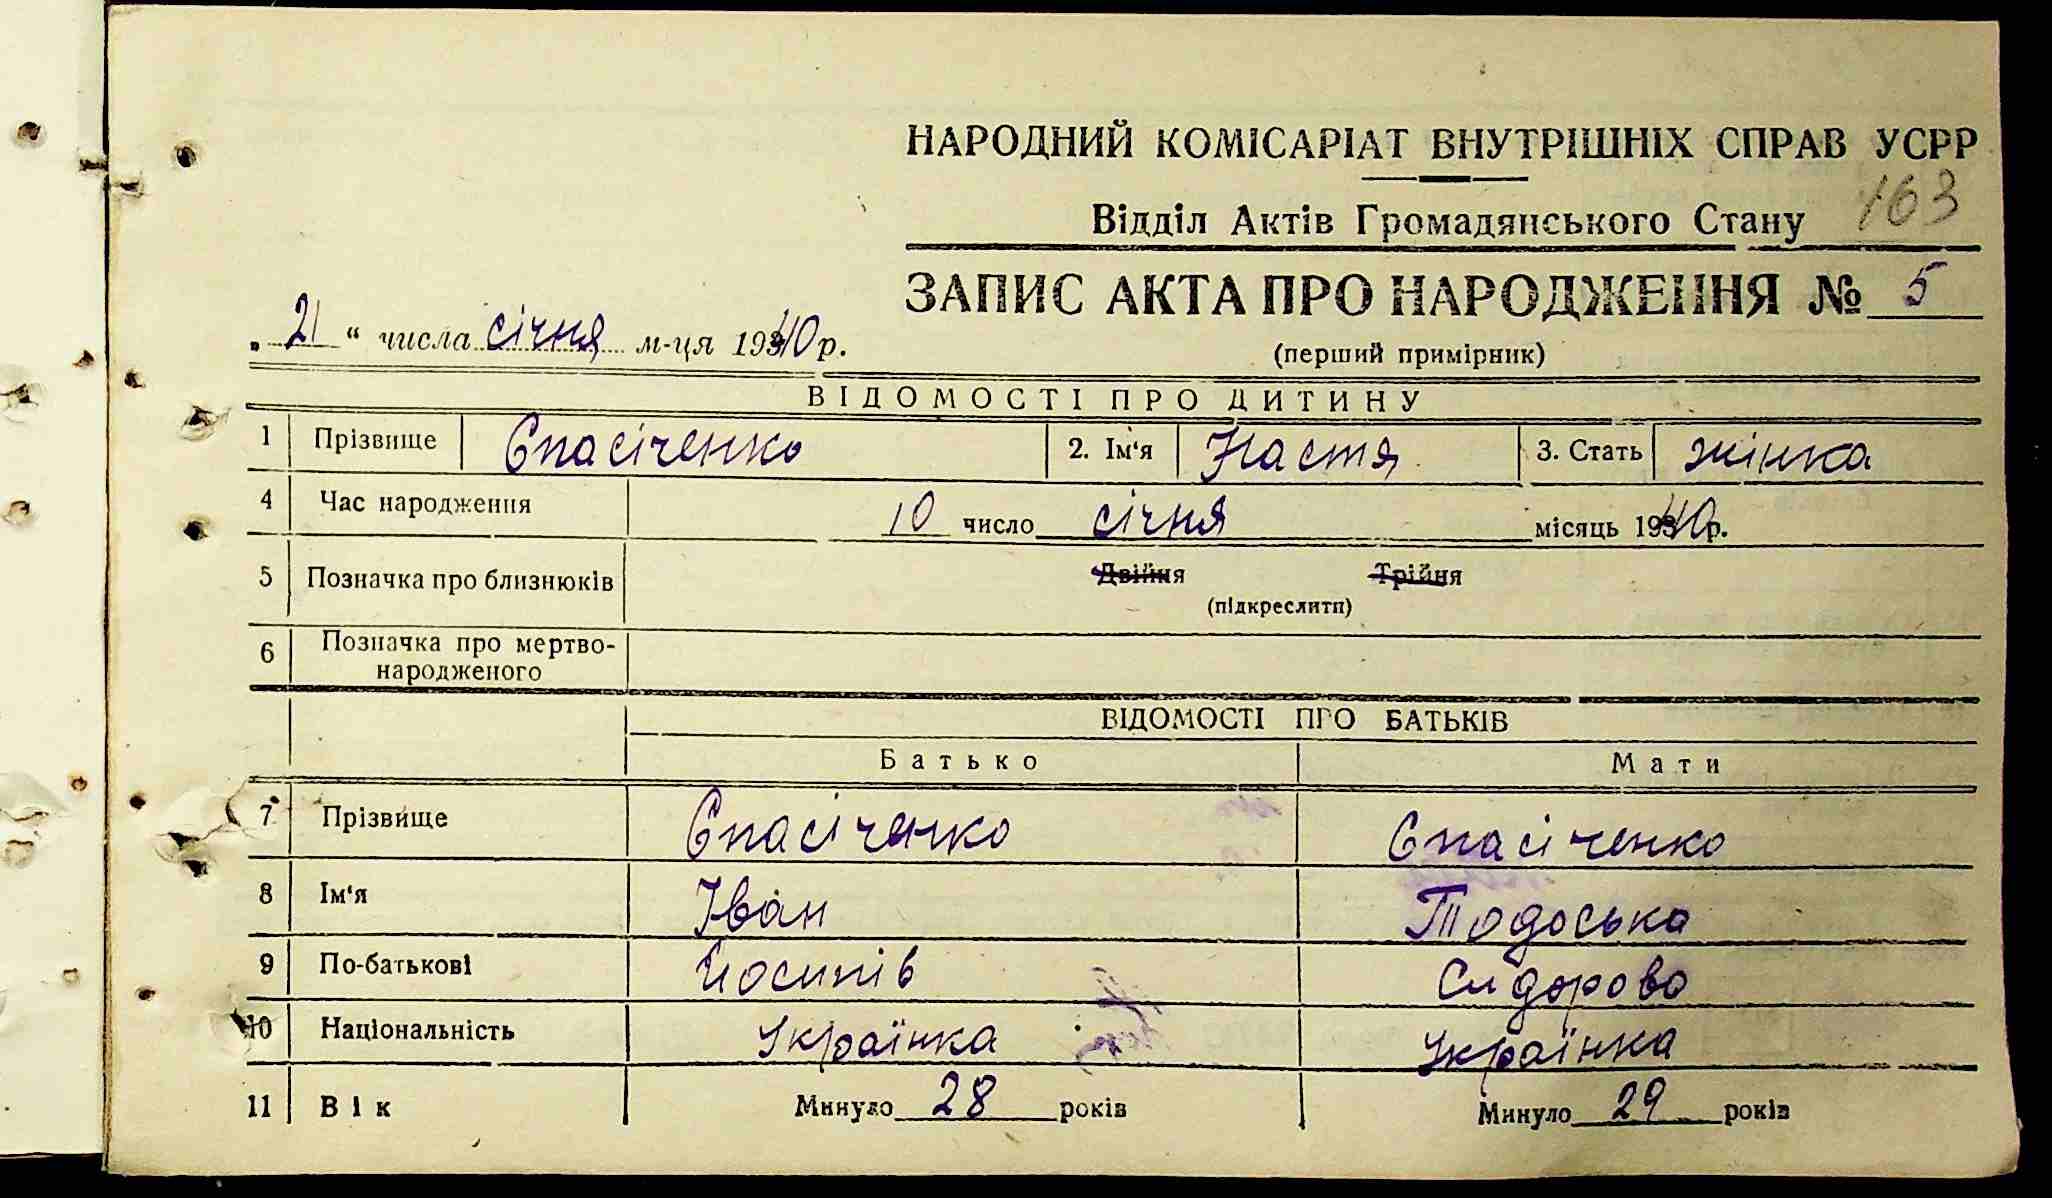 НАРОДНИЙ КОМІСАРІАТ ВНУТРІШНІХ СПРАВ УСРР
163
Відділ Актів Громадянського Стану
ЗАПИС АКТА ПРО НАРОДЖЕННЯ № 5
„ 21 “ числа січня м-ця 1940 р.
(перший примірник)
ВІДОМОСТІ ПРО ДИТИНУ
1 Прізвище Спасіченко 2. Ім'я Настя 3. Стать жінка
4 Час народження 10 число січня місяць 1940 р.
5 Позначка про близнюків Двійня Трійня
(підкреслити)
6 Позначка про мертво-
народженого
ВІДОМОСТІ ПРО БАТЬКІВ
Батько Мати
7 Прізвище Спасіченко Спасіченко
8 Ім'я Іван Тодоська
9 По-батькові Йосипів Сидорово
10 Національність Українка Українка
11 Вік Минуло 28 років Минуло 29 років